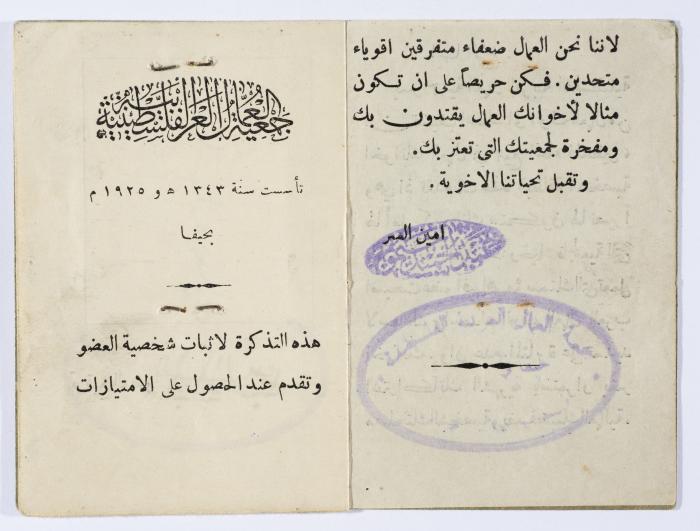 لاننا نحن العمال ضعفاء متفرقين اقوياء
متحدين . فكن حريصاً على ان تكون
مثالا لأخوانك العمال يقتدون بك
ومفخرة لجمعيتك التى تعتز بك .
وتقبل تحياتنا الاخوية .
امين السر
جمعية العمال العربية الفلسطينية
تأسست سنة ١٣٤٣ ھ و ١٩٢٥ م
بحيفا
هذه التذكرة لاثبات شخصية العضو
وتقدم عند الحصول على الامتيازات